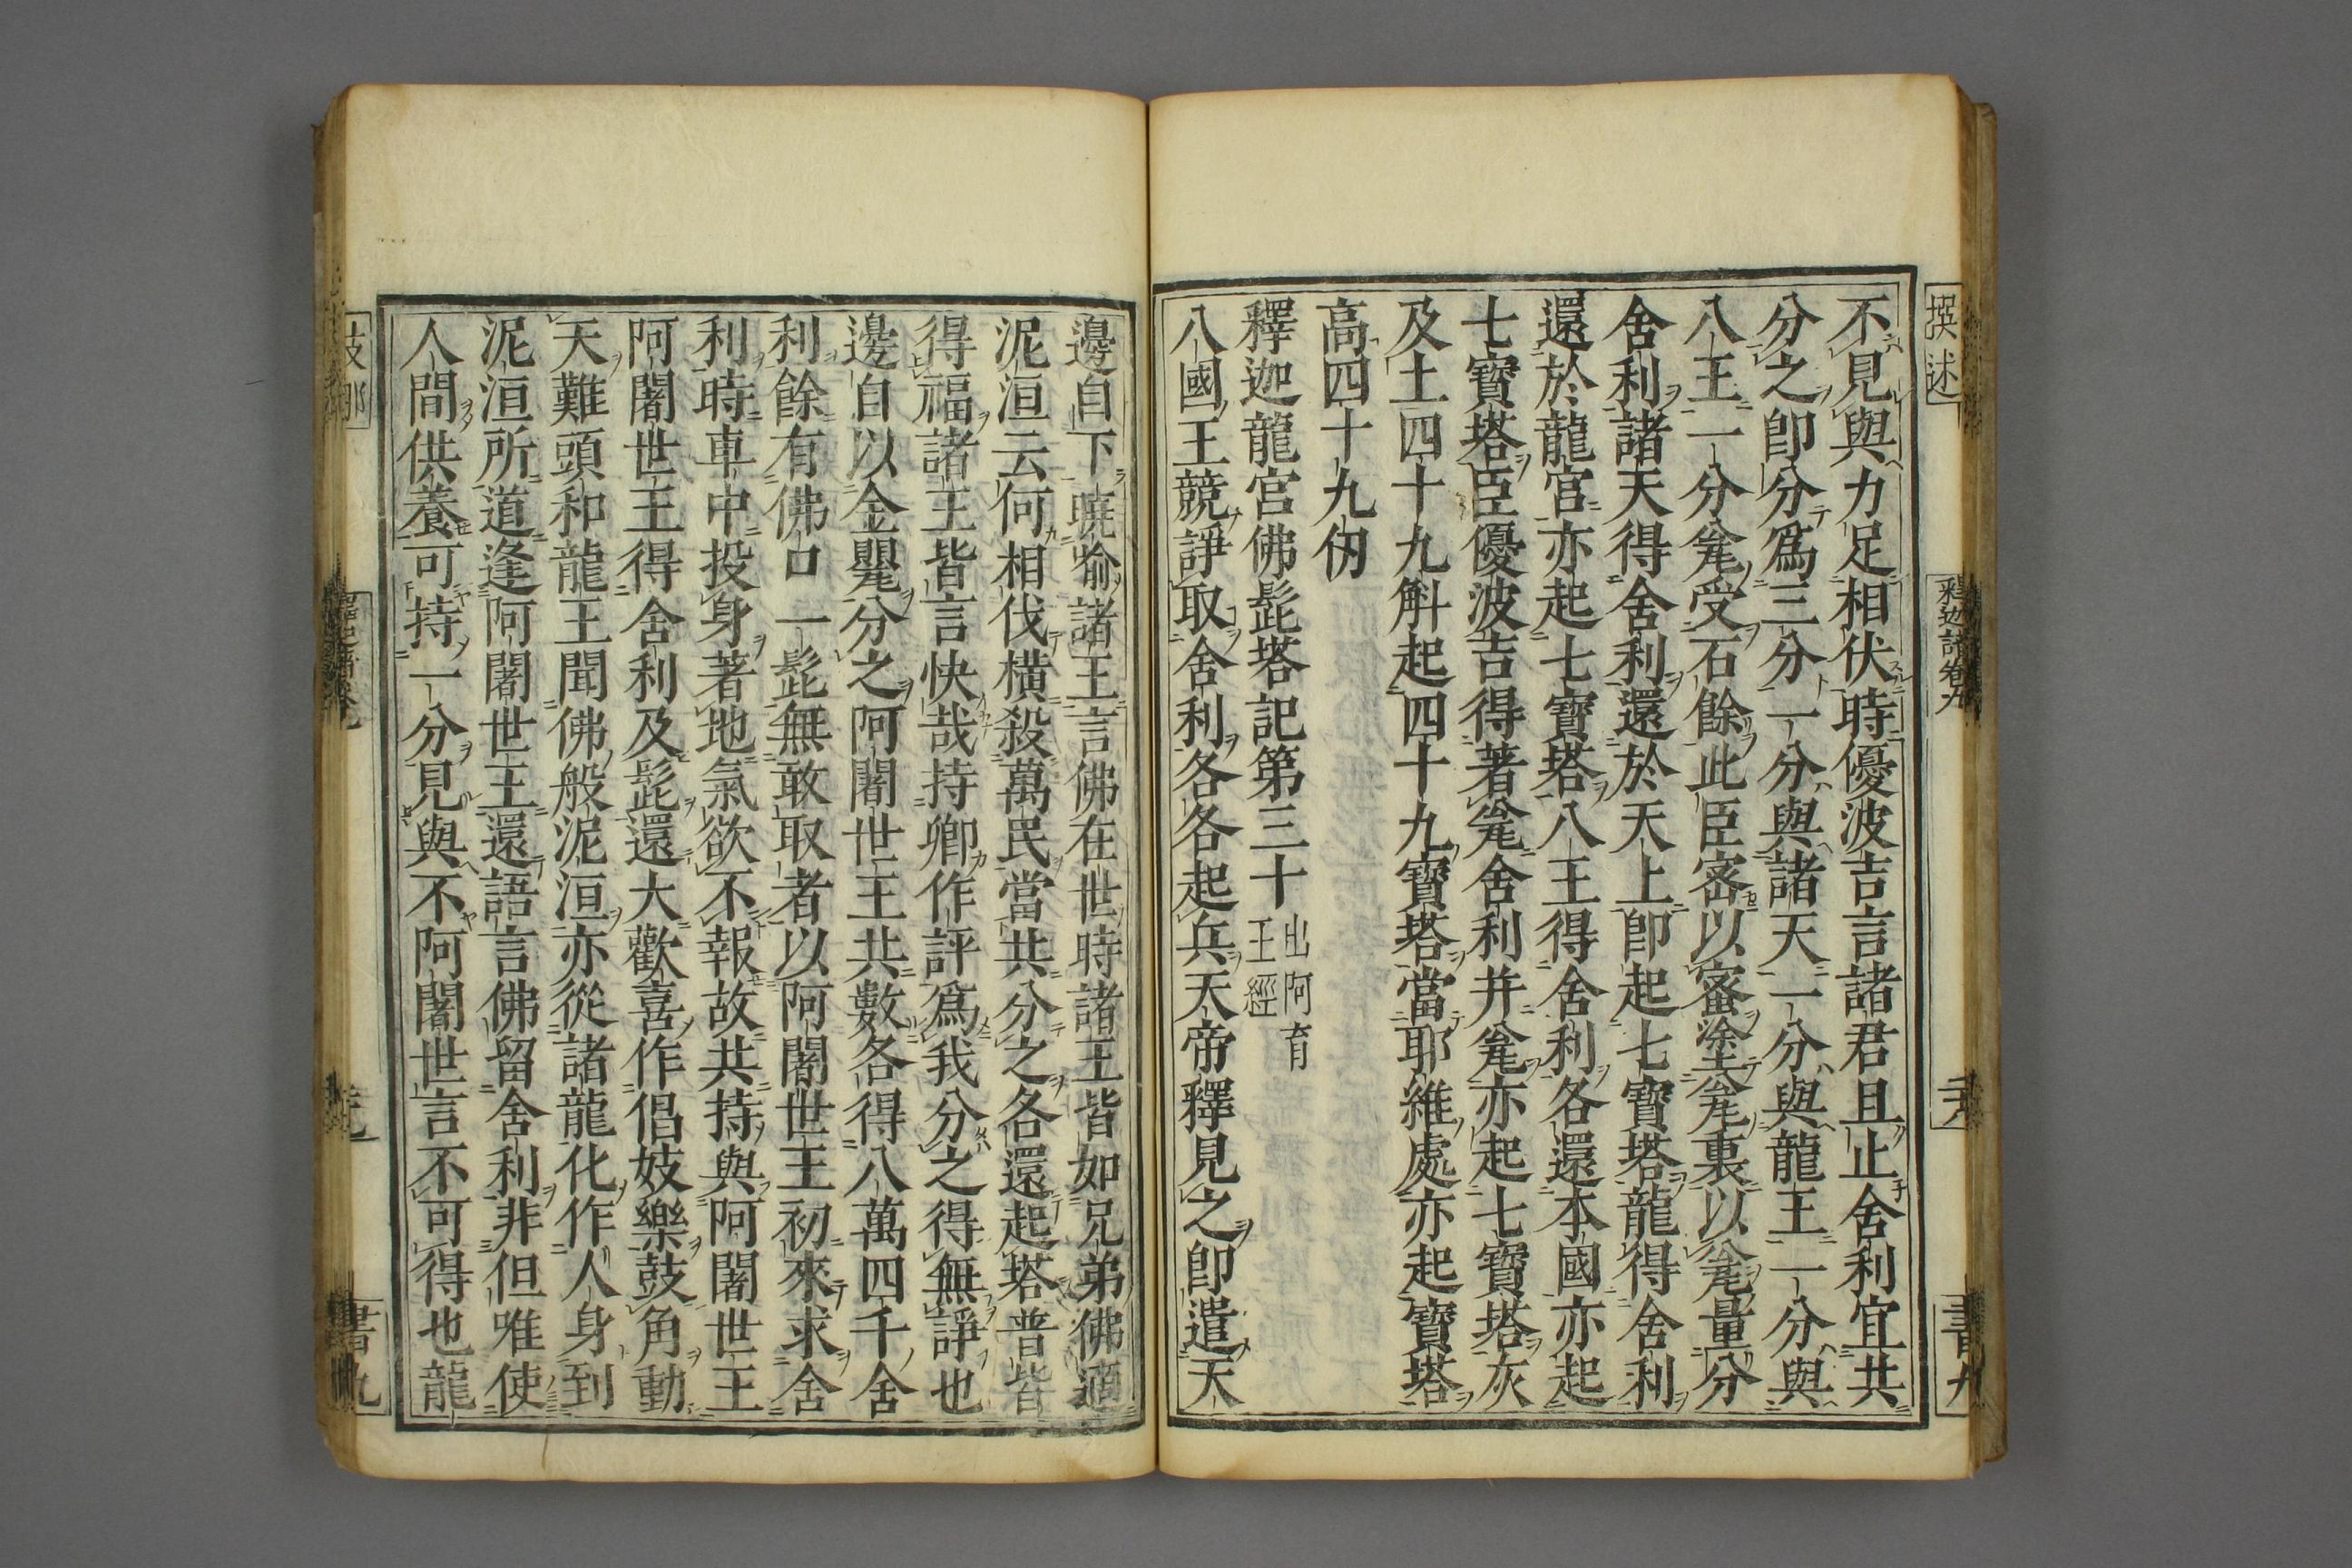 撰述
釋迦譜卷九
書九
不見與力足相伏時優波吉言諸君且止舍利宜共
分之卽分爲三分一分與諸天一分與龍王一分與
八王一分瓮受石餘此臣密以蜜塗瓮裏以瓮量分
舍利諸天得舍利還於天上卽起七寶塔龍得舍利
還於龍宮亦起七寶塔八王得舍利各還本國亦起
七寶塔臣優波吉得著瓮舍利并瓮亦起七寶塔灰
及土四十九斛起四十九寶塔當耶維處亦起寶塔
高四十九仞
釋迦龍宮佛髭塔記第三十
出阿育
王經
八國王競諍取舍利各各起兵天帝釋見之卽遣天
邊自下曉喻諸王言佛在世時諸王皆如兄弟佛適
泥洹云何相伐橫殺萬民當共分之各還起塔普皆
得福諸王皆言快哉持卿作評爲我分之得無諍也
邊自以金甖分之阿闍世王共數各得八萬四千舍
利餘有佛口一髭無敢取者以阿闍世王初來求舍
利時車中投身著地氣欲不報故共持與阿闍世王
阿闍世王得舍利及髭還大歡喜作倡妓樂鼓角動
天難頭和龍王聞佛般泥洹亦從諸龍化作人身到
泥洹所道逢阿闍世王還語言佛留舍利非但唯使
人間供養可持一分見與不阿闍世言不可得也龍
支那
書九